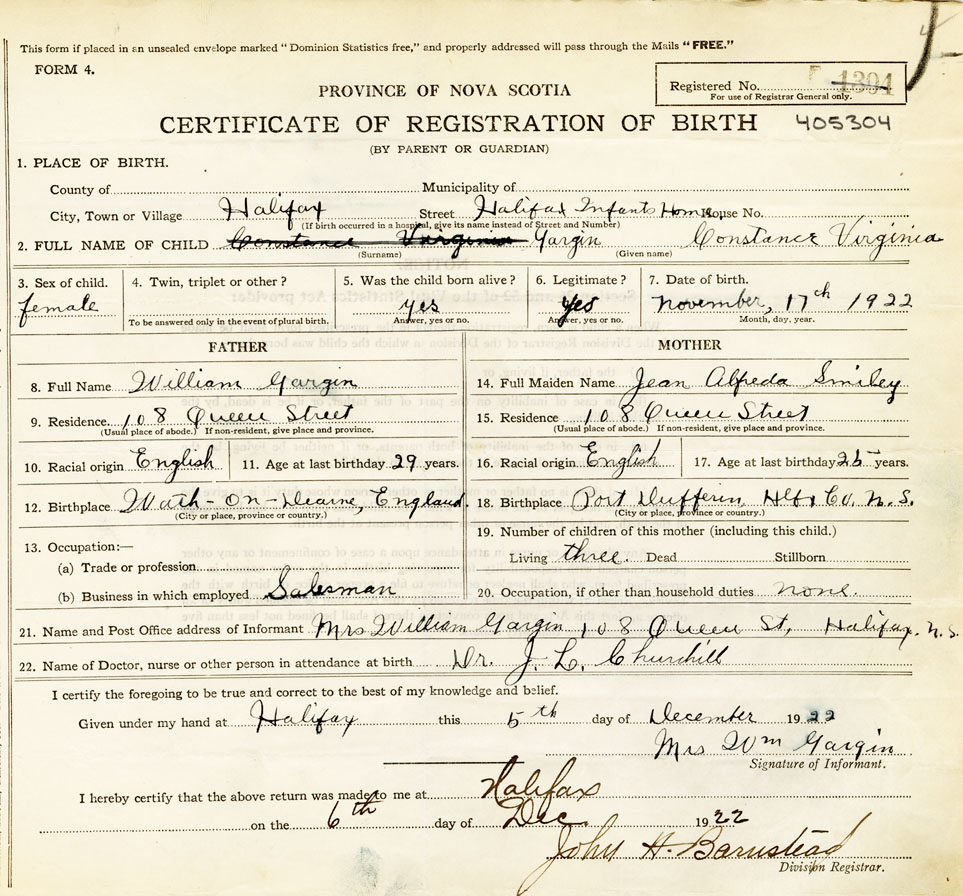 This form if placed in an unsealed envelope marked "Dominion Statistics free," and properly addressed will pass through the Mails "FREE."
FORM 4.
Registered No. 1394
For use of Registrar General only.
PROVINCE OF NOVA SCOTIA
CERTIFICATE OF REGISTRATION OF BIRTH 405304
(BY PARENT OR GUARDIAN)
1. PLACE OF BIRTH.
County of Municipality of
City, Town or Village Halifax Street Halifax Infants Home House No.
(If birth occurred in a hospital, give its name instead of Street and Number)
2. FULL NAME OF CHILD Constance Virginia Gargin Constance Virginia
(Surname) (Given name)
3. Sex of child. 4. Twin, triplet or other? 5. Was the child born alive? 6. Legitimate? 7. Date of birth.
female yes yes November, 17th 1922
To be answered only in the event of plural birth. Answer, yes or no. Answer, yes or no. Month, day, year.
FATHER MOTHER
8. Full Name William Gargin 14. Full Maiden Name Jean Alfreda Smiley
9. Residence 108 Queen Street 15. Residence 108 Queen Street
(Usual place of abode.) If non-resident, give place and province. (Usual place of abode.) If non-resident, give place and province.
10. Racial origin English 11. Age at last birthday 29 years. 16. Racial origin English 17. Age at last birthday 25 years.
12. Birthplace Wath-On-Dearne, England. 18. Birthplace Port Dufferin, Hlfx Co. N.S.
(City or place, province or country.) (City or place, province or country.)
19. Number of children of this mother (including this child.)
13. Occupation:—
Living three. Dead Stillborn
(a) Trade or profession
(b) Business in which employed Salesman 20. Occupation, if other than household duties none.
21. Name and Post Office address of Informant Mrs William Gargin 108 Queen St, Halifax. N.S.
22. Name of Doctor, nurse or other person in attendance at birth Dr. J. L. Churchill
I certify the foregoing to be true and correct to the best of my knowledge and belief.
Given under my hand at Halifax this 5th day of December 1922
Mrs Wm Gargin
Signature of Informant.
I hereby certify that the above return was made to me at Halifax
on the 6th day of Dec 1922
John H. Barnstead
Division Registrar.